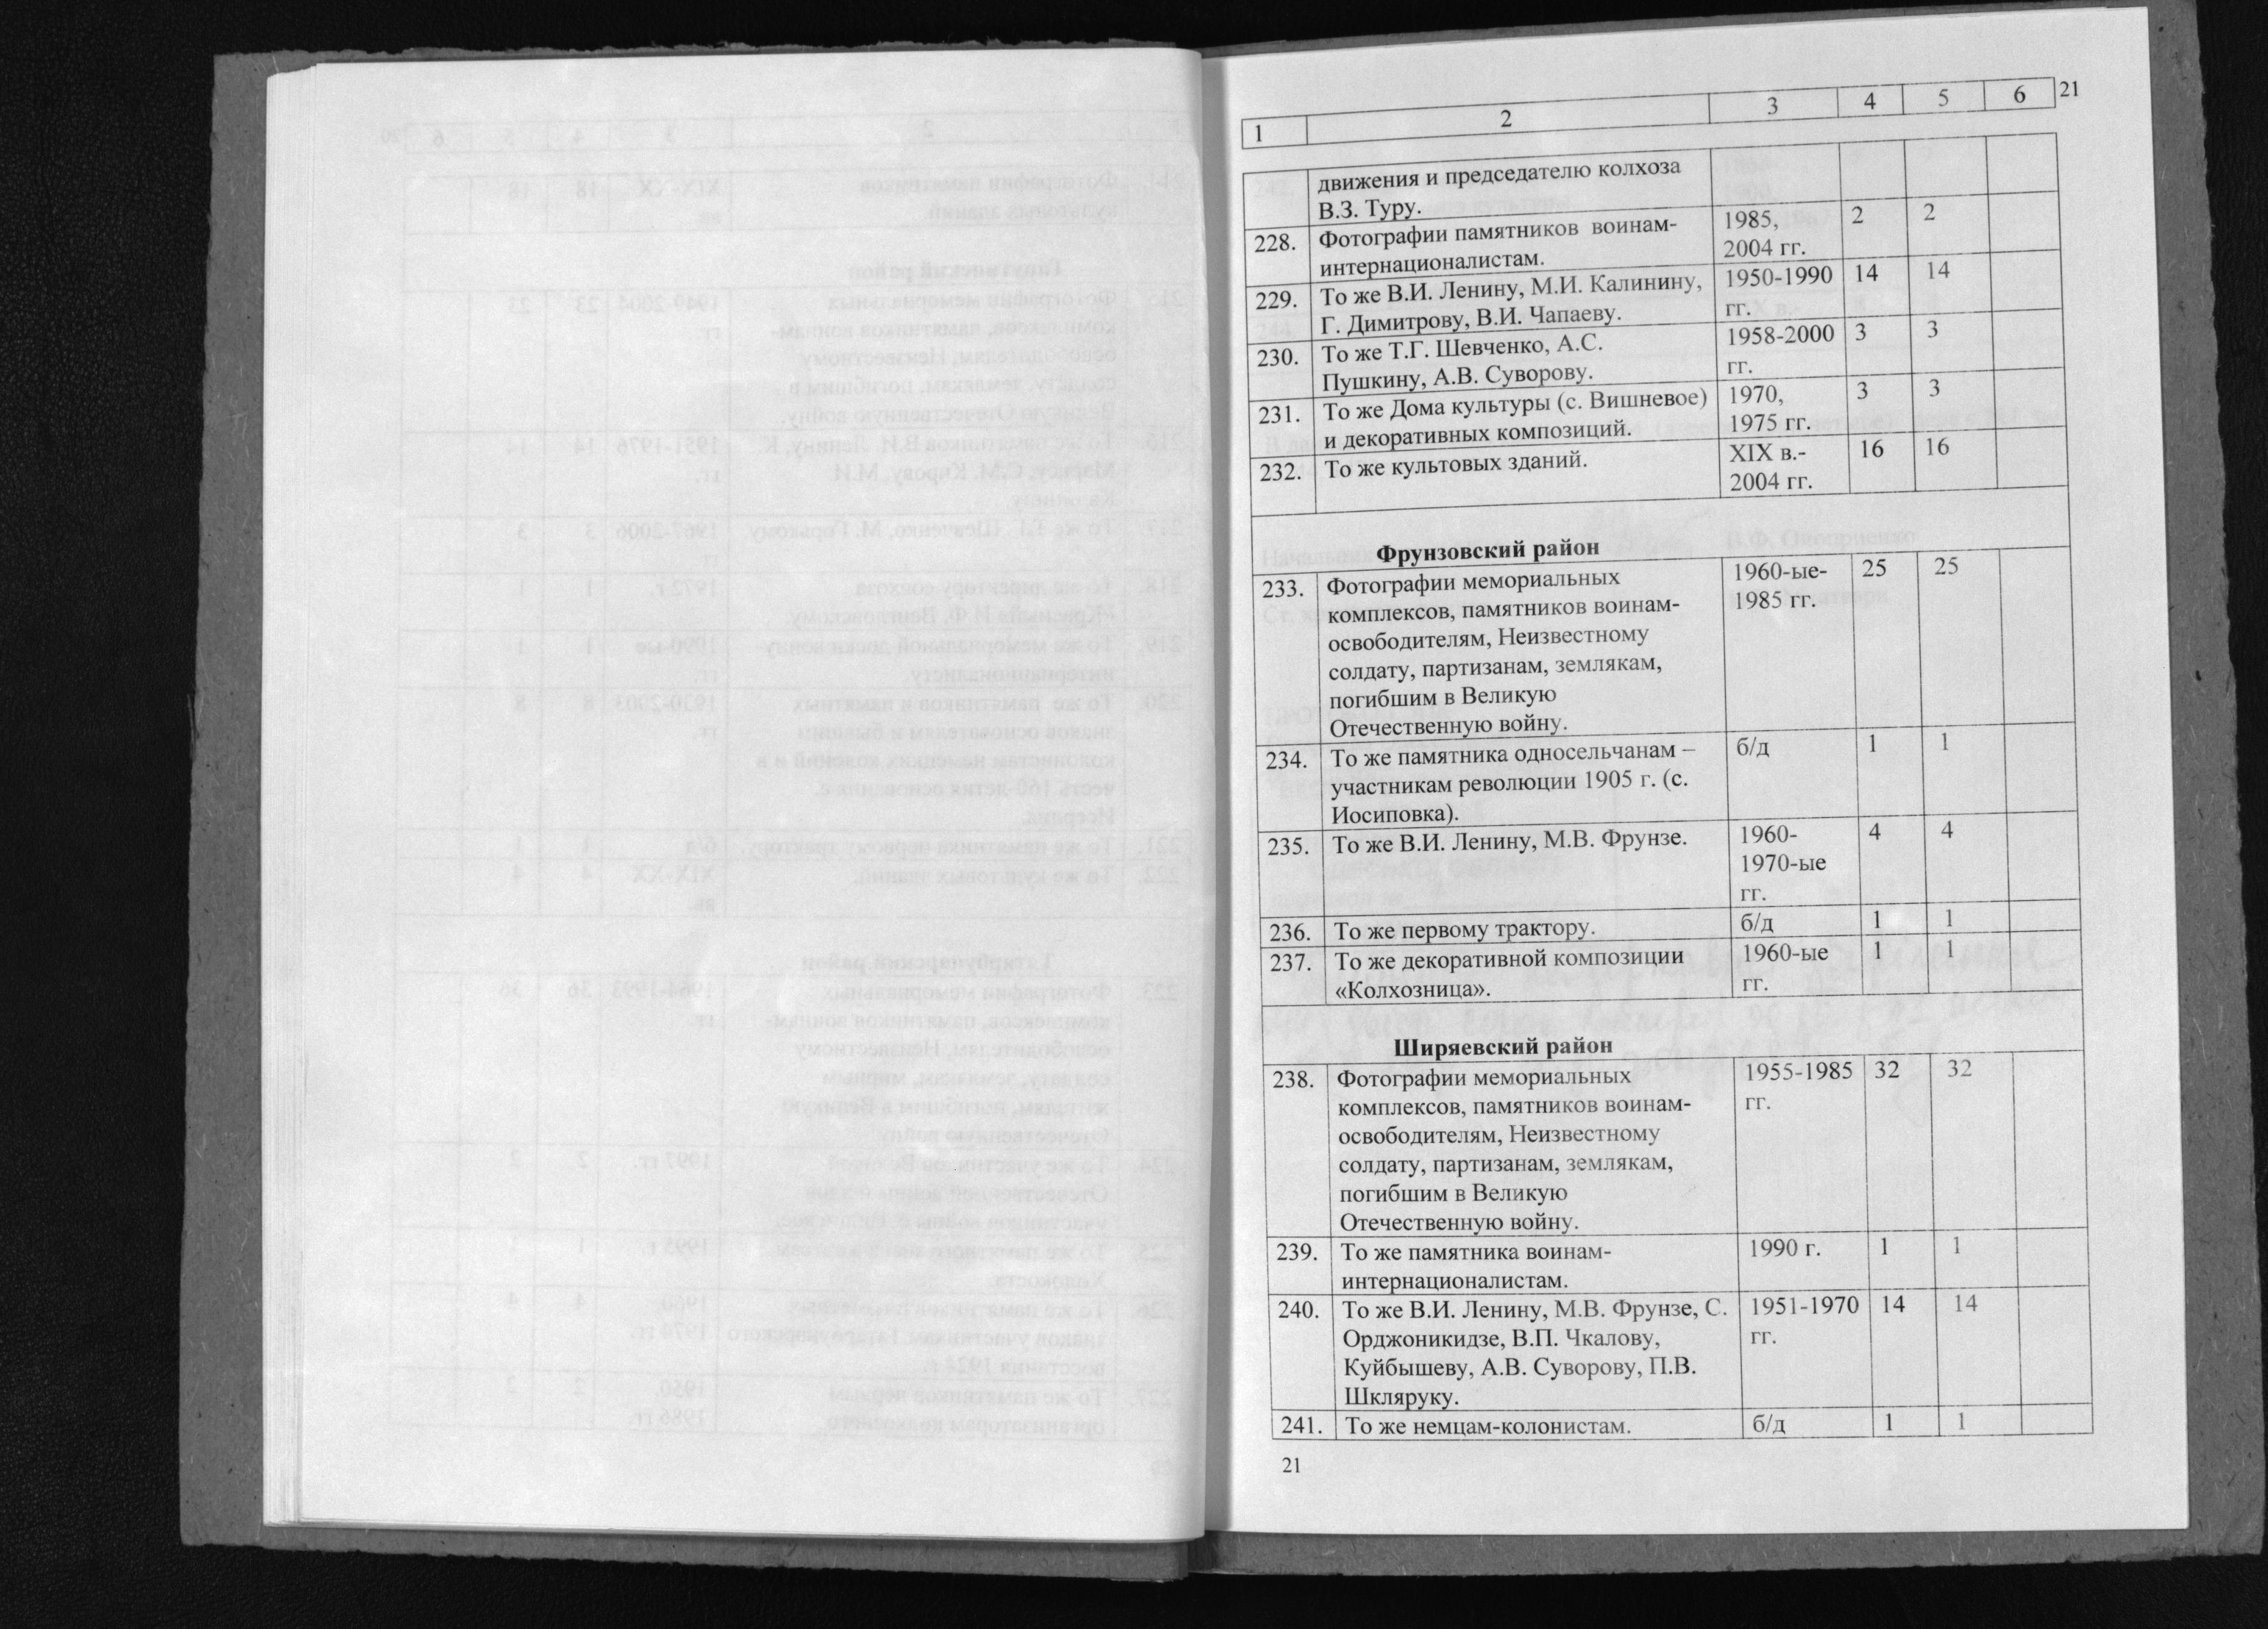 1 2 3 4 5 6 21
движения и председателю колхоза
В.З. Туру.
228. Фотографии памятников воинам- 1985, 2 2
интернационалистам. 2004 гг.
229. То же В.И. Ленину, М.И. Калинину, 1950-1990 14 14
Г. Димитрову, В.И. Чапаеву. гг.
230. То же Т.Г. Шевченко, А.С. 1958-2000 3 3
Пушкину, А.В. Суворову. гг.
231. То же Дома культуры (с. Вишневое) 1970, 3 3
и декоративных композиций. 1975 гг.
232. То же культовых зданий. XIX в.- 16 16
2004 гг.
Фрунзовский район
233. Фотографии мемориальных 1960-ые- 25 25
комплексов, памятников воинам- 1985 гг.
освободителям, Неизвестному
солдату, партизанам, землякам,
погибшим в Великую
Отечественную войну.
234. То же памятника односельчанам – б/д 1 1
участникам революции 1905 г. (с.
Иосиповка).
235. То же В.И. Ленину, М.В. Фрунзе. 1960- 4 4
1970-ые
гг.
236. То же первому трактору. б/д 1 1
237. То же декоративной композиции 1960-ые 1 1
«Колхозница». гг.
Ширяевский район
238. Фотографии мемориальных 1955-1985 32 32
комплексов, памятников воинам- гг.
освободителям, Неизвестному
солдату, партизанам, землякам,
погибшим в Великую
Отечественную войну.
239. То же памятника воинам- 1990 г. 1 1
интернационалистам.
240. То же В.И. Ленину, М.В. Фрунзе, С. 1951-1970 14 14
Орджоникидзе, В.П. Чкалову, гг.
Куйбышеву, А.В. Суворову, П.В.
Шкляруку.
241. То же немцам-колонистам. б/д 1 1
21